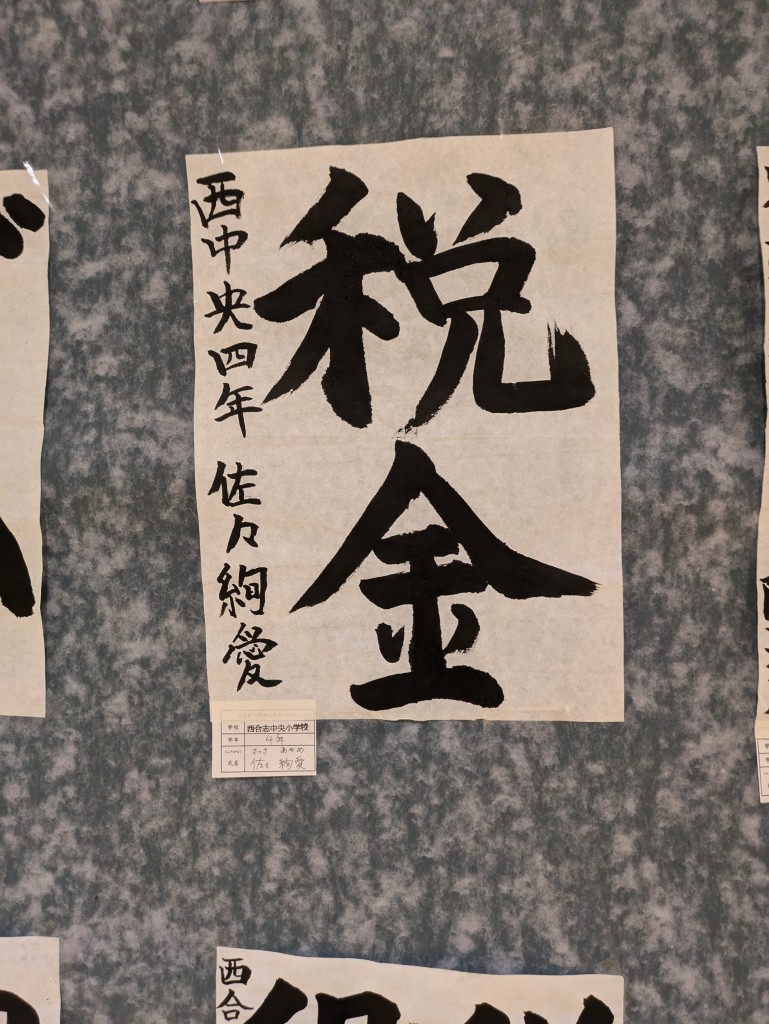 税金
西中央四年 佐々絢愛
学校 西合志中央小学校
学年 4年
ふりがな さっさ あやめ
氏名 佐々 絢愛
西合